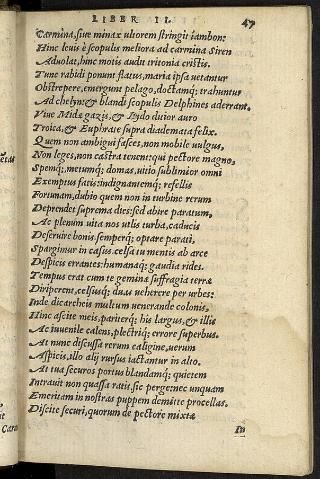 LIBER II. 47
Carmina, siue minax ultorem stringit iambon:
Hinc leuis è scopulis meliora ad carmina Siren
Aduolat, hinc motis audit tritonia cristis.
Tunc rabidi ponunt flatus, maria ipsa uetantur
Obstrepere, emergunt pelago, doctamq; trahuntur
Ad chelyn, & blandi scopulis Delphines aderrant.
Viue Midæ gazis, & Lydo ditior auro
Troica, & Euphratæ supra diademata felix.
Quem non ambigui fasces, non mobile uulgus,
Non leges, non castra tenent: qui pectore magno,
Spemq; metumq; domas, uitio sublimior omni
Exemptus fatis: indignantemq; refellis
Fortunam, dubio quem non in turbine rerum
Deprendet suprema dies: sed abire paratum,
Ac plenum uita nos utlis turba, caducis
Deseruire bonis semperq; optare parati,
Spargimur in casus. celsa tu mentis ab arce
Despicis errantes: humanaq; gaudia rides.
Tempus erat cum te geminæ suffragia terræ
Diriperent, celsusq; duas ueherere per urbes:
Inde dicarcheis multum uenerande colonis,
Hinc ascite meis, pariterq; his largus, & illis
Ac iuuenile calens, plectriq; errore superbus.
At nunc discussa rerum caligine, uerum
Aspicis, illo alij rursus iactantur in alto.
At tua securos portus blandamq; quietem
Intrauit non quassa ratis, sic perge: nec unquam
Emeritam in nostras puppem demitte procellas.
Discite securi, quorum de pectore mixtæ
In